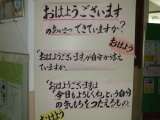 おはようございます
のあいさつ できていますか？
おはよう
"おはようございます"が自分から言え
ていますか。
"おはようございます"は
「今日もよろしくね」という自分
の気もちをつたえるもの
おはよう